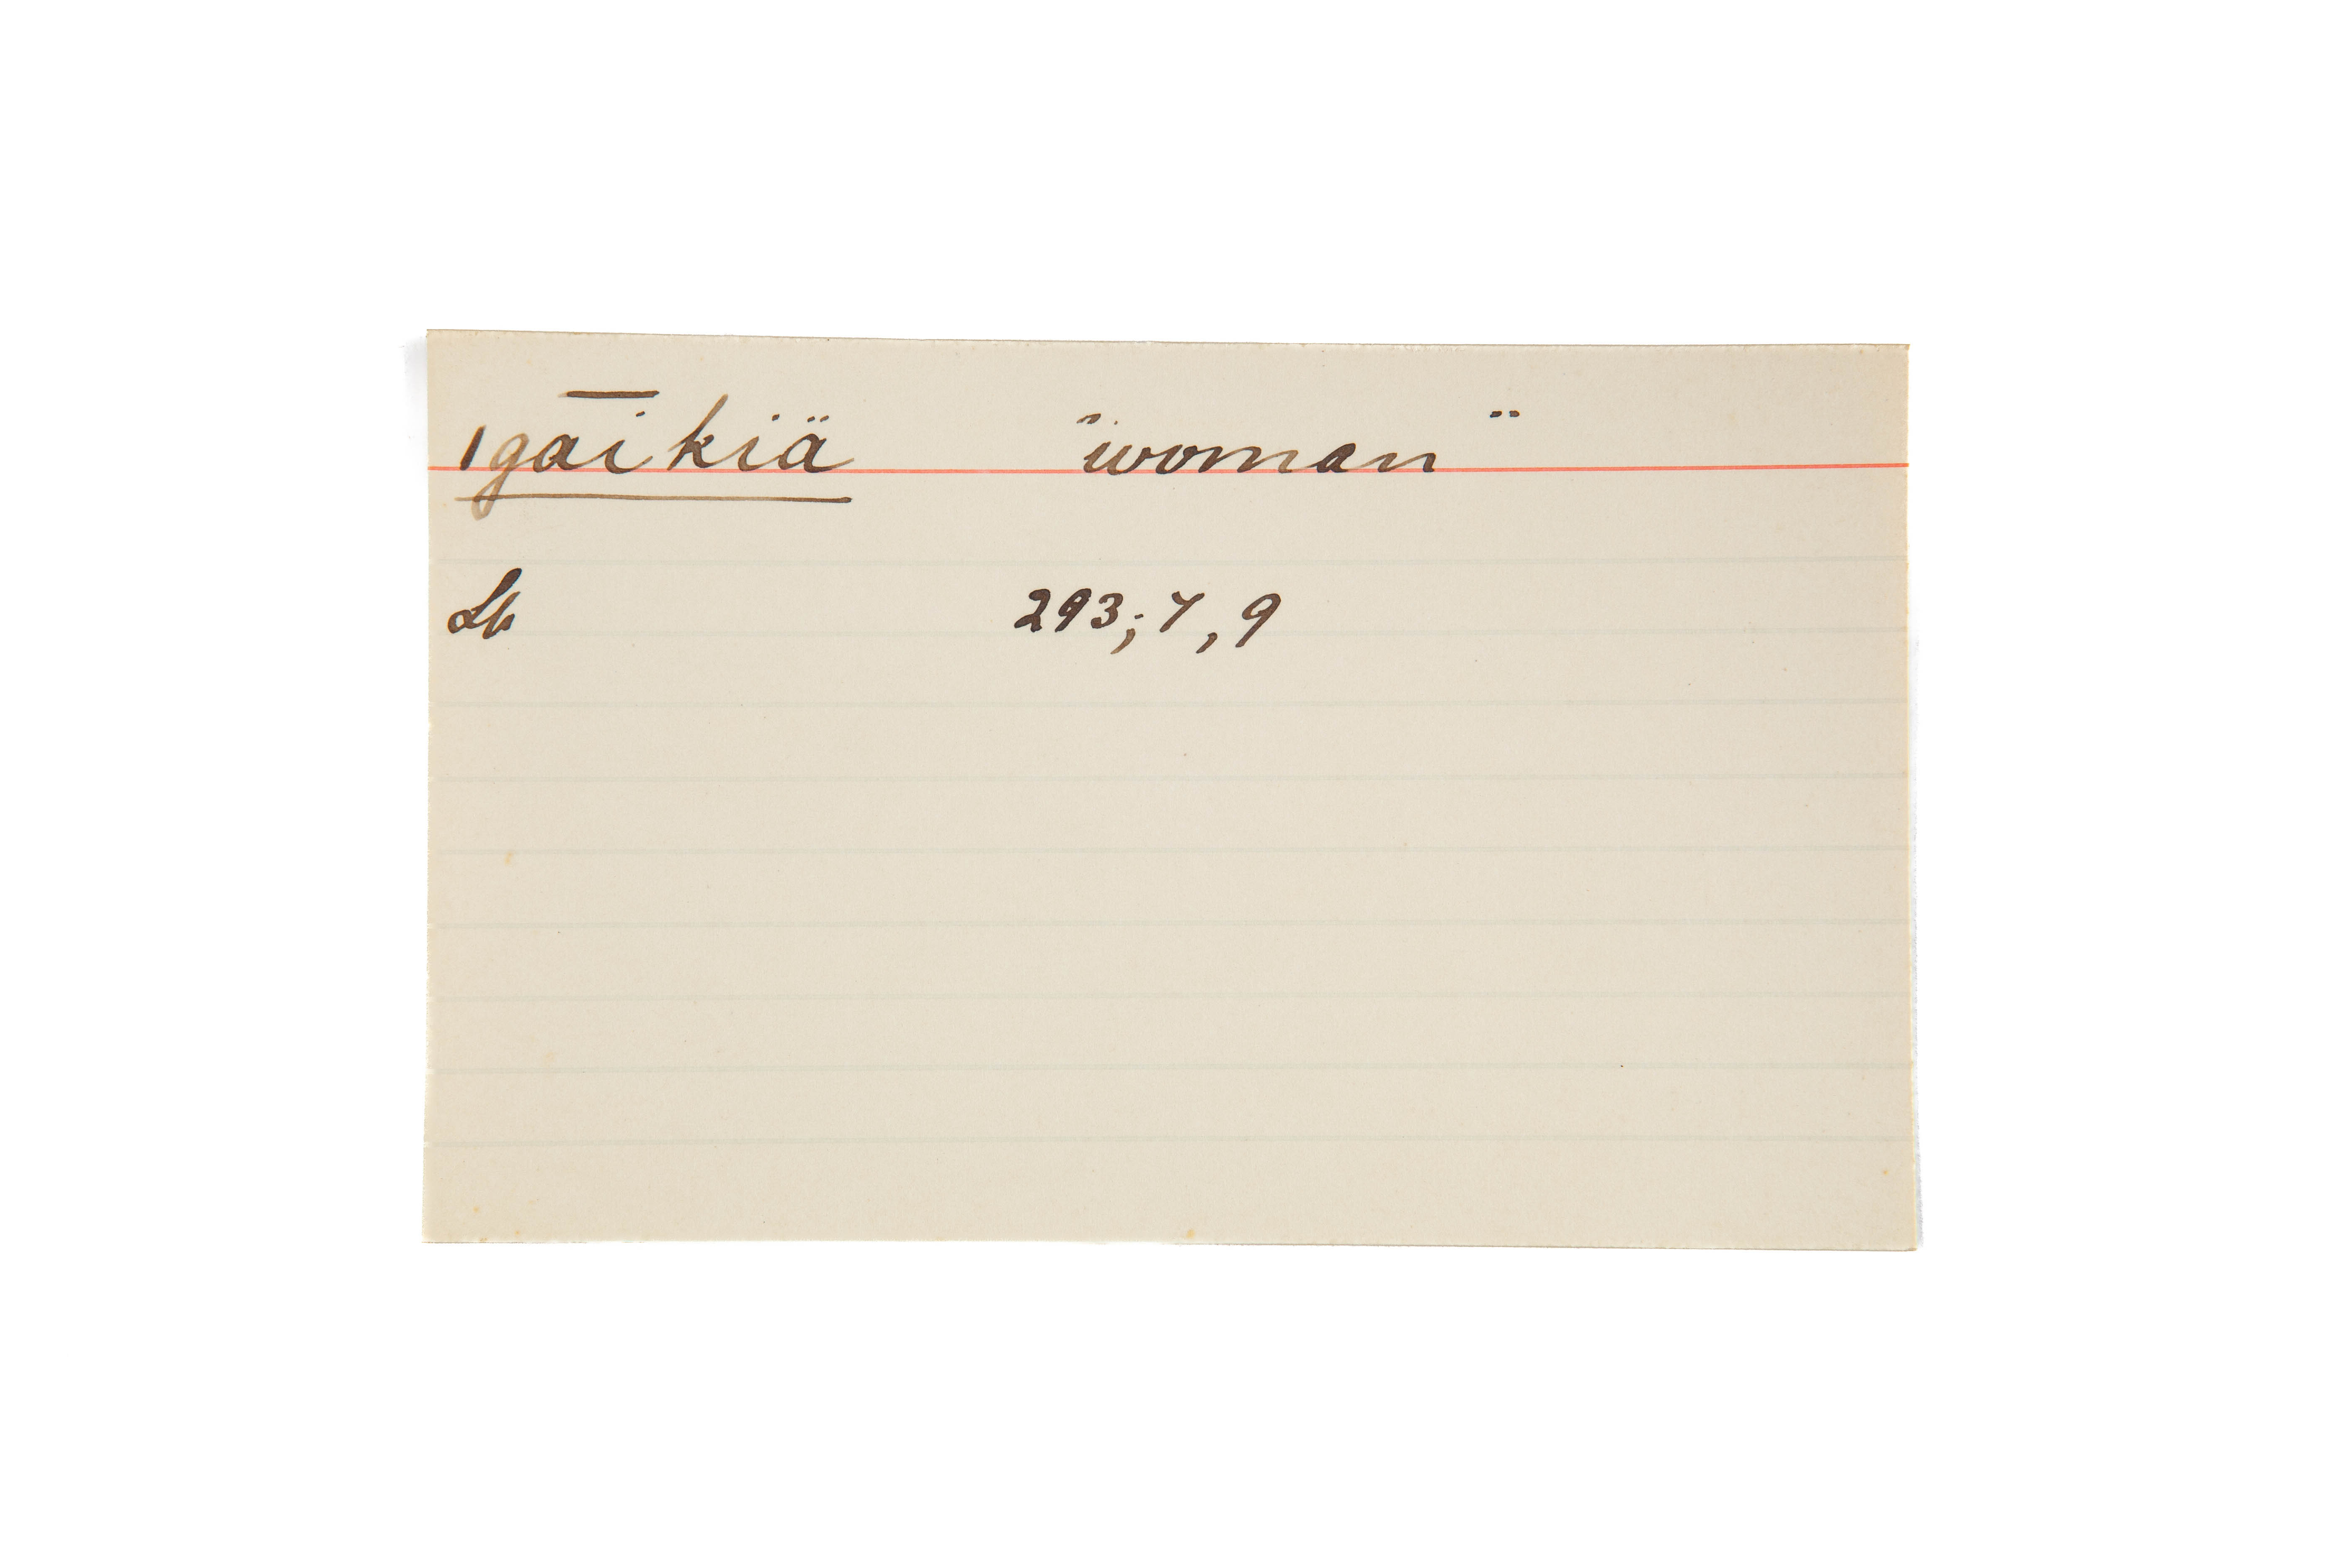 ǀgāi̅kiä "woman"
Lb 293; 7, 9